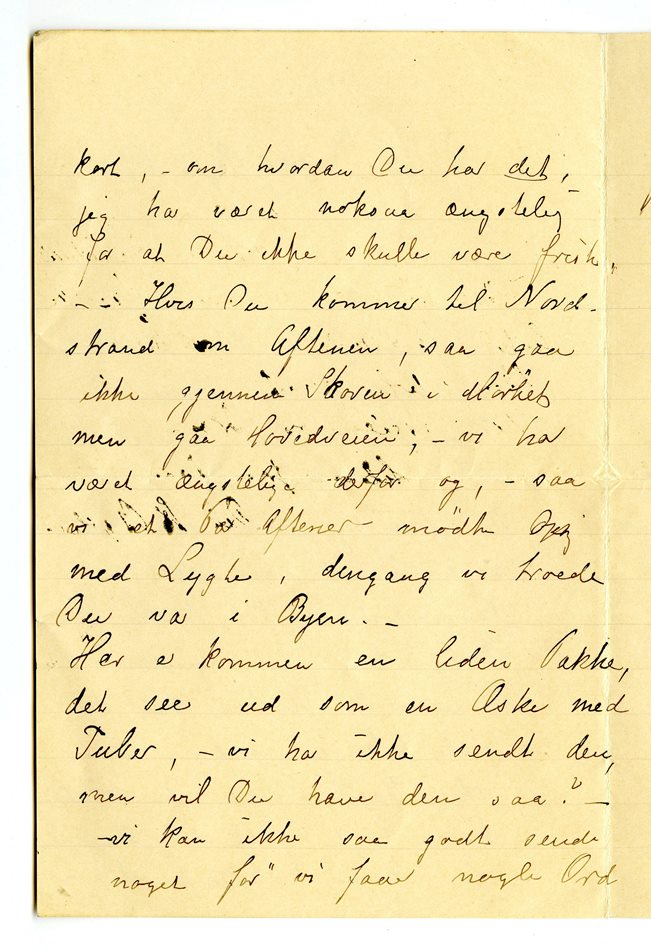 kort, – om hvordan Du har det,
jeg har været noksaa ængstelig
for at Du ikke skulle være frisk,
– – Hvis Du kommer til Nord-
strand om Aftenen, saa gaa
ikke gjennem Skoven i Mörket
men gaa Hovedveien, – vi har
været ængstelige derfor og, – saa
vi et Par Aftener mödte op
med Lygte, dengang vi troede
Du var i Byen. –
Her er kommen en liden Pakke,
det seer ud som en Æske med
Tuber, – vi har ikke sendt den,
men vil Du have den saa? –
– vi kan ikke saa godt sende
noget för vi faar nogle Ord